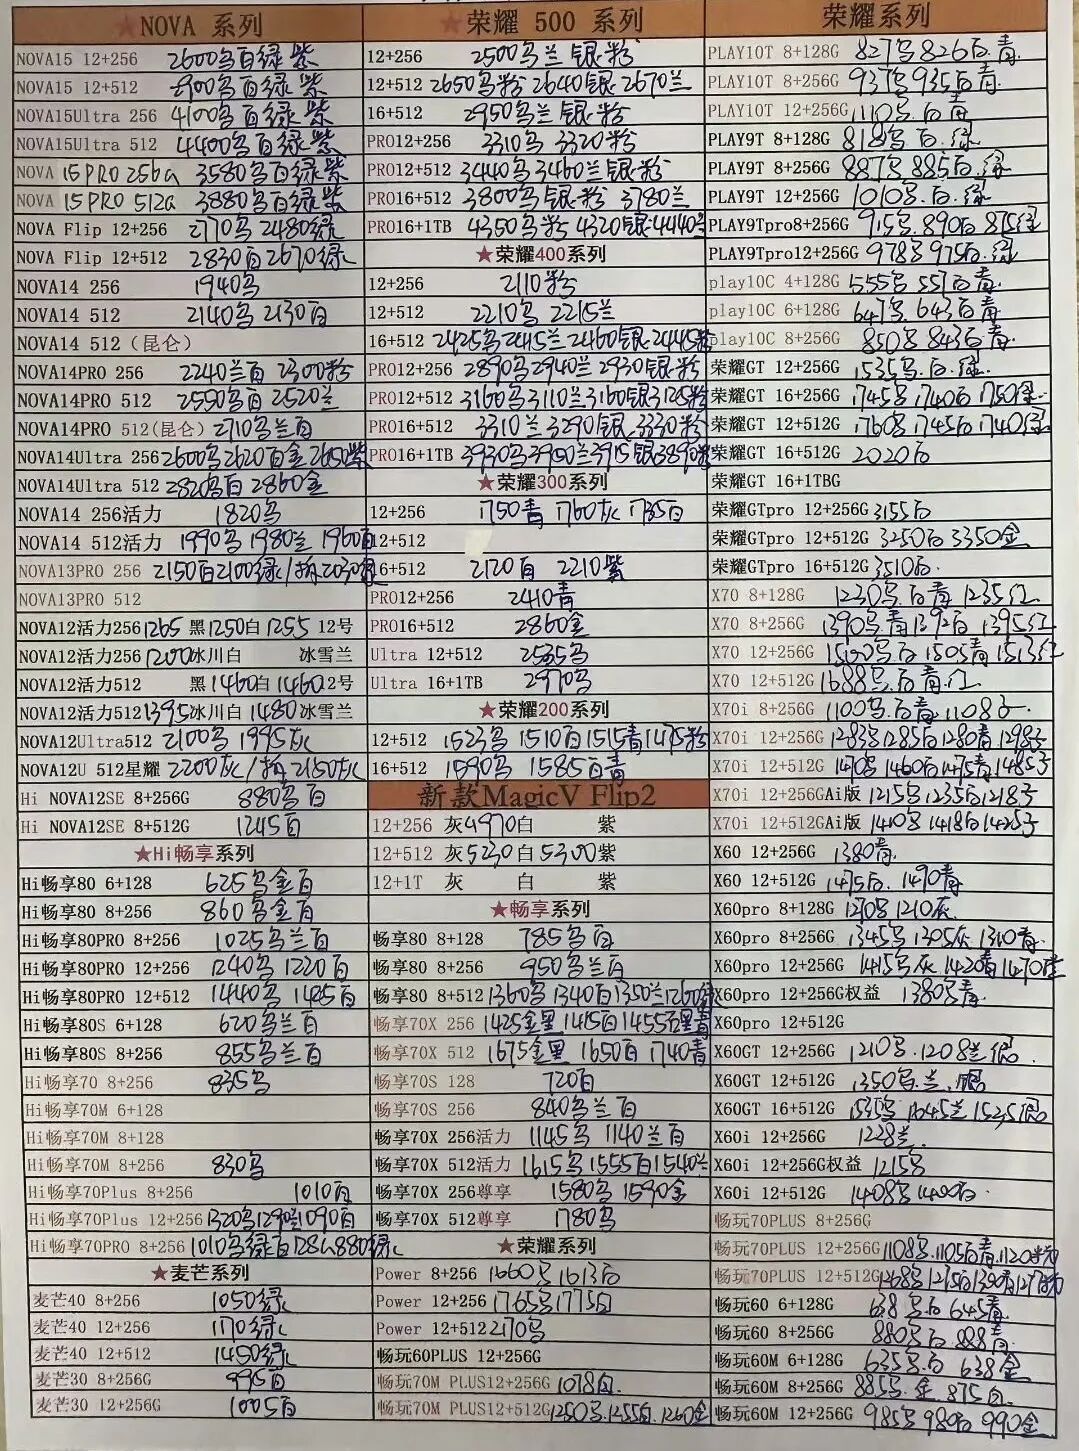 ★NOVA 系列
NOVA15 12+256 2600乌白绿紫
NOVA15 12+512 2900乌白绿紫
NOVA15Ultra 256 4100乌白绿紫
NOVA15Ultra 512 4400乌白绿紫
NOVA 15PRO 256G 3580乌白绿紫
NOVA 15PRO 512G 3880乌白绿紫
NOVA Flip 12+256 2770乌 2480绿
NOVA Flip 12+512 2830白 2670绿
NOVA14 256 1940乌
NOVA14 512 2140乌 2130白
NOVA14 512(昆仑)
NOVA14PRO 256 2240兰白 2300粉
NOVA14PRO 512 2550乌白 2520兰
NOVA14PRO 512(昆仑) 2710乌兰白
NOVA14Ultra 256 2600乌2620白金2650紫
NOVA14Ultra 512 2820乌白 2860金
NOVA14 256活力 1820乌
NOVA14 512活力 1990乌 1980兰 1960白
NOVA13PRO 256 2150白2100绿/拆2030绿
NOVA13PRO 512
NOVA12活力256 1265 黑1250白1255 12号
NOVA12活力256 1200冰川白 冰雪兰
NOVA12活力512 黑1460白1460 12号
NOVA12活力512 1395冰川白 1480冰雪兰
NOVA12Ultra512 2100乌 1995灰
NOVA12U 512星耀 2200灰/拆2150灰
Hi NOVA12SE 8+256G 880乌白
Hi NOVA12SE 8+512G 1245白
★Hi畅享系列
Hi畅享80 6+128 625乌金白
Hi畅享80 8+256 860乌金白
Hi畅享80PRO 8+256 1025乌兰白
Hi畅享80PRO 12+256 1240乌 1220白
Hi畅享80PRO 12+512 1440乌 1425白
Hi畅享80S 6+128 620乌兰白
Hi畅享80S 8+256 855乌兰白
Hi畅享70 8+256 835乌
Hi畅享70M 6+128
Hi畅享70M 8+128
Hi畅享70M 8+256 830乌
Hi畅享70Plus 8+256 1010白
Hi畅享70Plus 12+256 1320乌1290兰1090白
Hi畅享70PRO 8+256 1010乌绿白128G880绿
★麦芒系列
麦芒40 8+256 1050绿
麦芒40 12+256 1170绿
麦芒40 12+512 1450绿
麦芒30 8+256G 995白
麦芒30 12+256G 1005白
★荣耀 500 系列
12+256 2500乌兰银粉
12+512 2650乌粉 2640银 2670兰
16+512 2950乌兰银粉
PRO12+256 3310乌 3320粉
PRO12+512 3440乌3460兰银粉
PRO16+512 3800乌银粉 3780兰
PRO16+1TB 4350乌粉 4320银4440兰
★荣耀400系列
12+256 2110粉
12+512 2210乌 2215兰
16+512 2425乌2415兰2460银2445粉
PRO12+256 2890乌2940兰2930银粉
PRO12+512 3160乌3110兰3160银3125粉
PRO16+512 3310兰3290银 3330粉
PRO16+1TB 3930乌3950兰3915银3890粉
★荣耀300系列
12+256 1750青 1760灰 1735白
12+512
16+512 2120白 2210紫
PRO12+256 2410青
PRO16+512 2860金
Ultra 12+512 2565乌
Ultra 16+1TB 2970乌
★荣耀200系列
12+512 1523乌 1510白1515青1475粉
16+512 1590乌 1585白青
新款MagicV Flip2
12+256 灰4970白 紫
12+512 灰5230白5300紫
12+1T 灰 白 紫
★畅享系列
畅享80 8+128 785乌白
畅享80 8+256 950乌兰白
畅享80 8+512 1360乌 1340白1350兰1260绿
畅享70X 256 1425金黑 1415白1455石墨青
畅享70X 512 1675金黑 1650白 1740青
畅享70S 128 720白
畅享70S 256 840乌兰白
畅享70X 256活力 1145乌 1140兰白
畅享70X 512活力 1615乌1555白1540兰
畅享70X 256尊享 1580乌 1590金
畅享70X 512尊享 1780乌
★荣耀系列
Power 8+256 1660乌1613白
Power 12+256 1765乌1775白
Power 12+512 2170乌
畅玩60PLUS 12+256G
畅玩70M PLUS12+256G 1078白
畅玩70M PLUS12+512G 1250乌.1255白.1260金
荣耀系列
PLAY10T 8+128G 827乌826白.青
PLAY10T 8+256G 937乌935白青
PLAY10T 12+256G 1110乌.白青
PLAY9T 8+128G 818乌 白.绿
PLAY9T 8+256G 887乌885白.绿
PLAY9T 12+256G 1010乌.白.绿
PLAY9Tpro8+256G 915乌.890白 875绿
PLAY9Tpro12+256G 978乌975白.绿
play10C 4+128G 555乌 557白青
play10C 6+128G 647乌 643白青
play10C 8+256G 850乌 843白青
荣耀GT 12+256G 1535乌.白.绿
荣耀GT 16+256G 1745乌1740白1750金
荣耀GT 12+512G 1760乌1745白1740绿
荣耀GT 16+512G 2020白
荣耀GT 16+1TBG
荣耀GTpro 12+256G 3155白
荣耀GTpro 12+512G 3250白 3350金
荣耀GTpro 16+512G 3510白
X70 8+128G 1230乌.白青 1235红
X70 8+256G 1390乌青1392白1395红
X70 12+256G 1500乌白1505青1513红
X70 12+512G 1688乌.白青.红
X70i 8+256G 1100乌.白青1108子
X70i 12+256G 1283乌1285白1280青1298子
X70i 12+512G 1470乌1460白1475青1485子
X70i 12+256GAi版 1215乌1235白1218子
X70i 12+512GAi版 1410乌1418白1425子
X60 12+256G 1380青
X60 12+512G 1475白.1490青
X60pro 8+128G 1270乌 1210灰
X60pro 8+256G 1345乌1305灰1310青
X60pro 12+256G 1415乌灰1420青1470橙
X60pro 12+256G权益 1380乌青
X60pro 12+512G
X60GT 12+256G 1210乌.1208兰银
X60GT 12+512G 1350乌.兰.银
X60GT 16+512G 1535乌 1645兰1525银
X60i 12+256G 1228兰
X60i 12+256G权益 1215乌
X60i 12+512G 1408乌1400白
畅玩70PLUS 8+256G
畅玩70PLUS 12+256G 1108乌.1105白青.1120粉
畅玩70PLUS 12+512G 1268乌1275白1390青1277粉
畅玩60 6+128G 638乌白 645青
畅玩60 8+256G 880乌白 888青
畅玩60M 6+128G 635乌白 638金
畅玩60M 8+256G 885乌.金 875白
畅玩60M 12+256G 985乌980白 990金